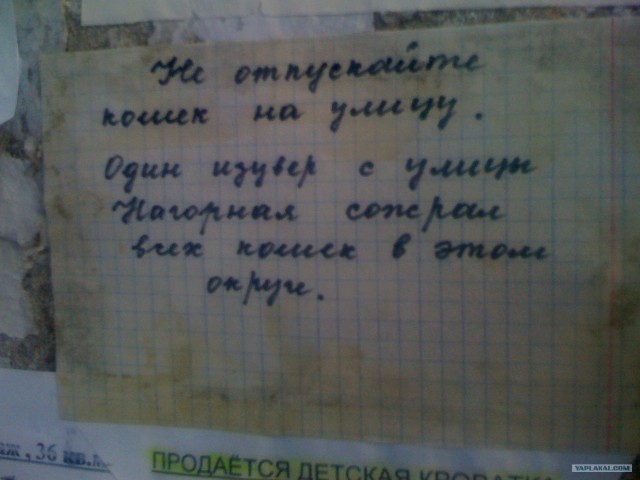 Не отпускайте
кошек на улицу.
Один изувер с улицы
Нагорная сожрал
всех кошек в этом
округе.
аж, 36 кв.м.
ПРОДАЁТСЯ ДЕТСКАЯ КРОВАТКА
YAPLAKAL.COM